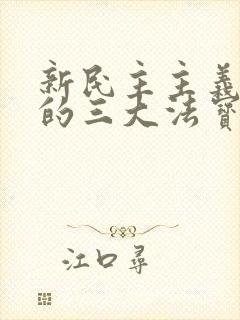 新民主主義
的三大法寶
江口尋